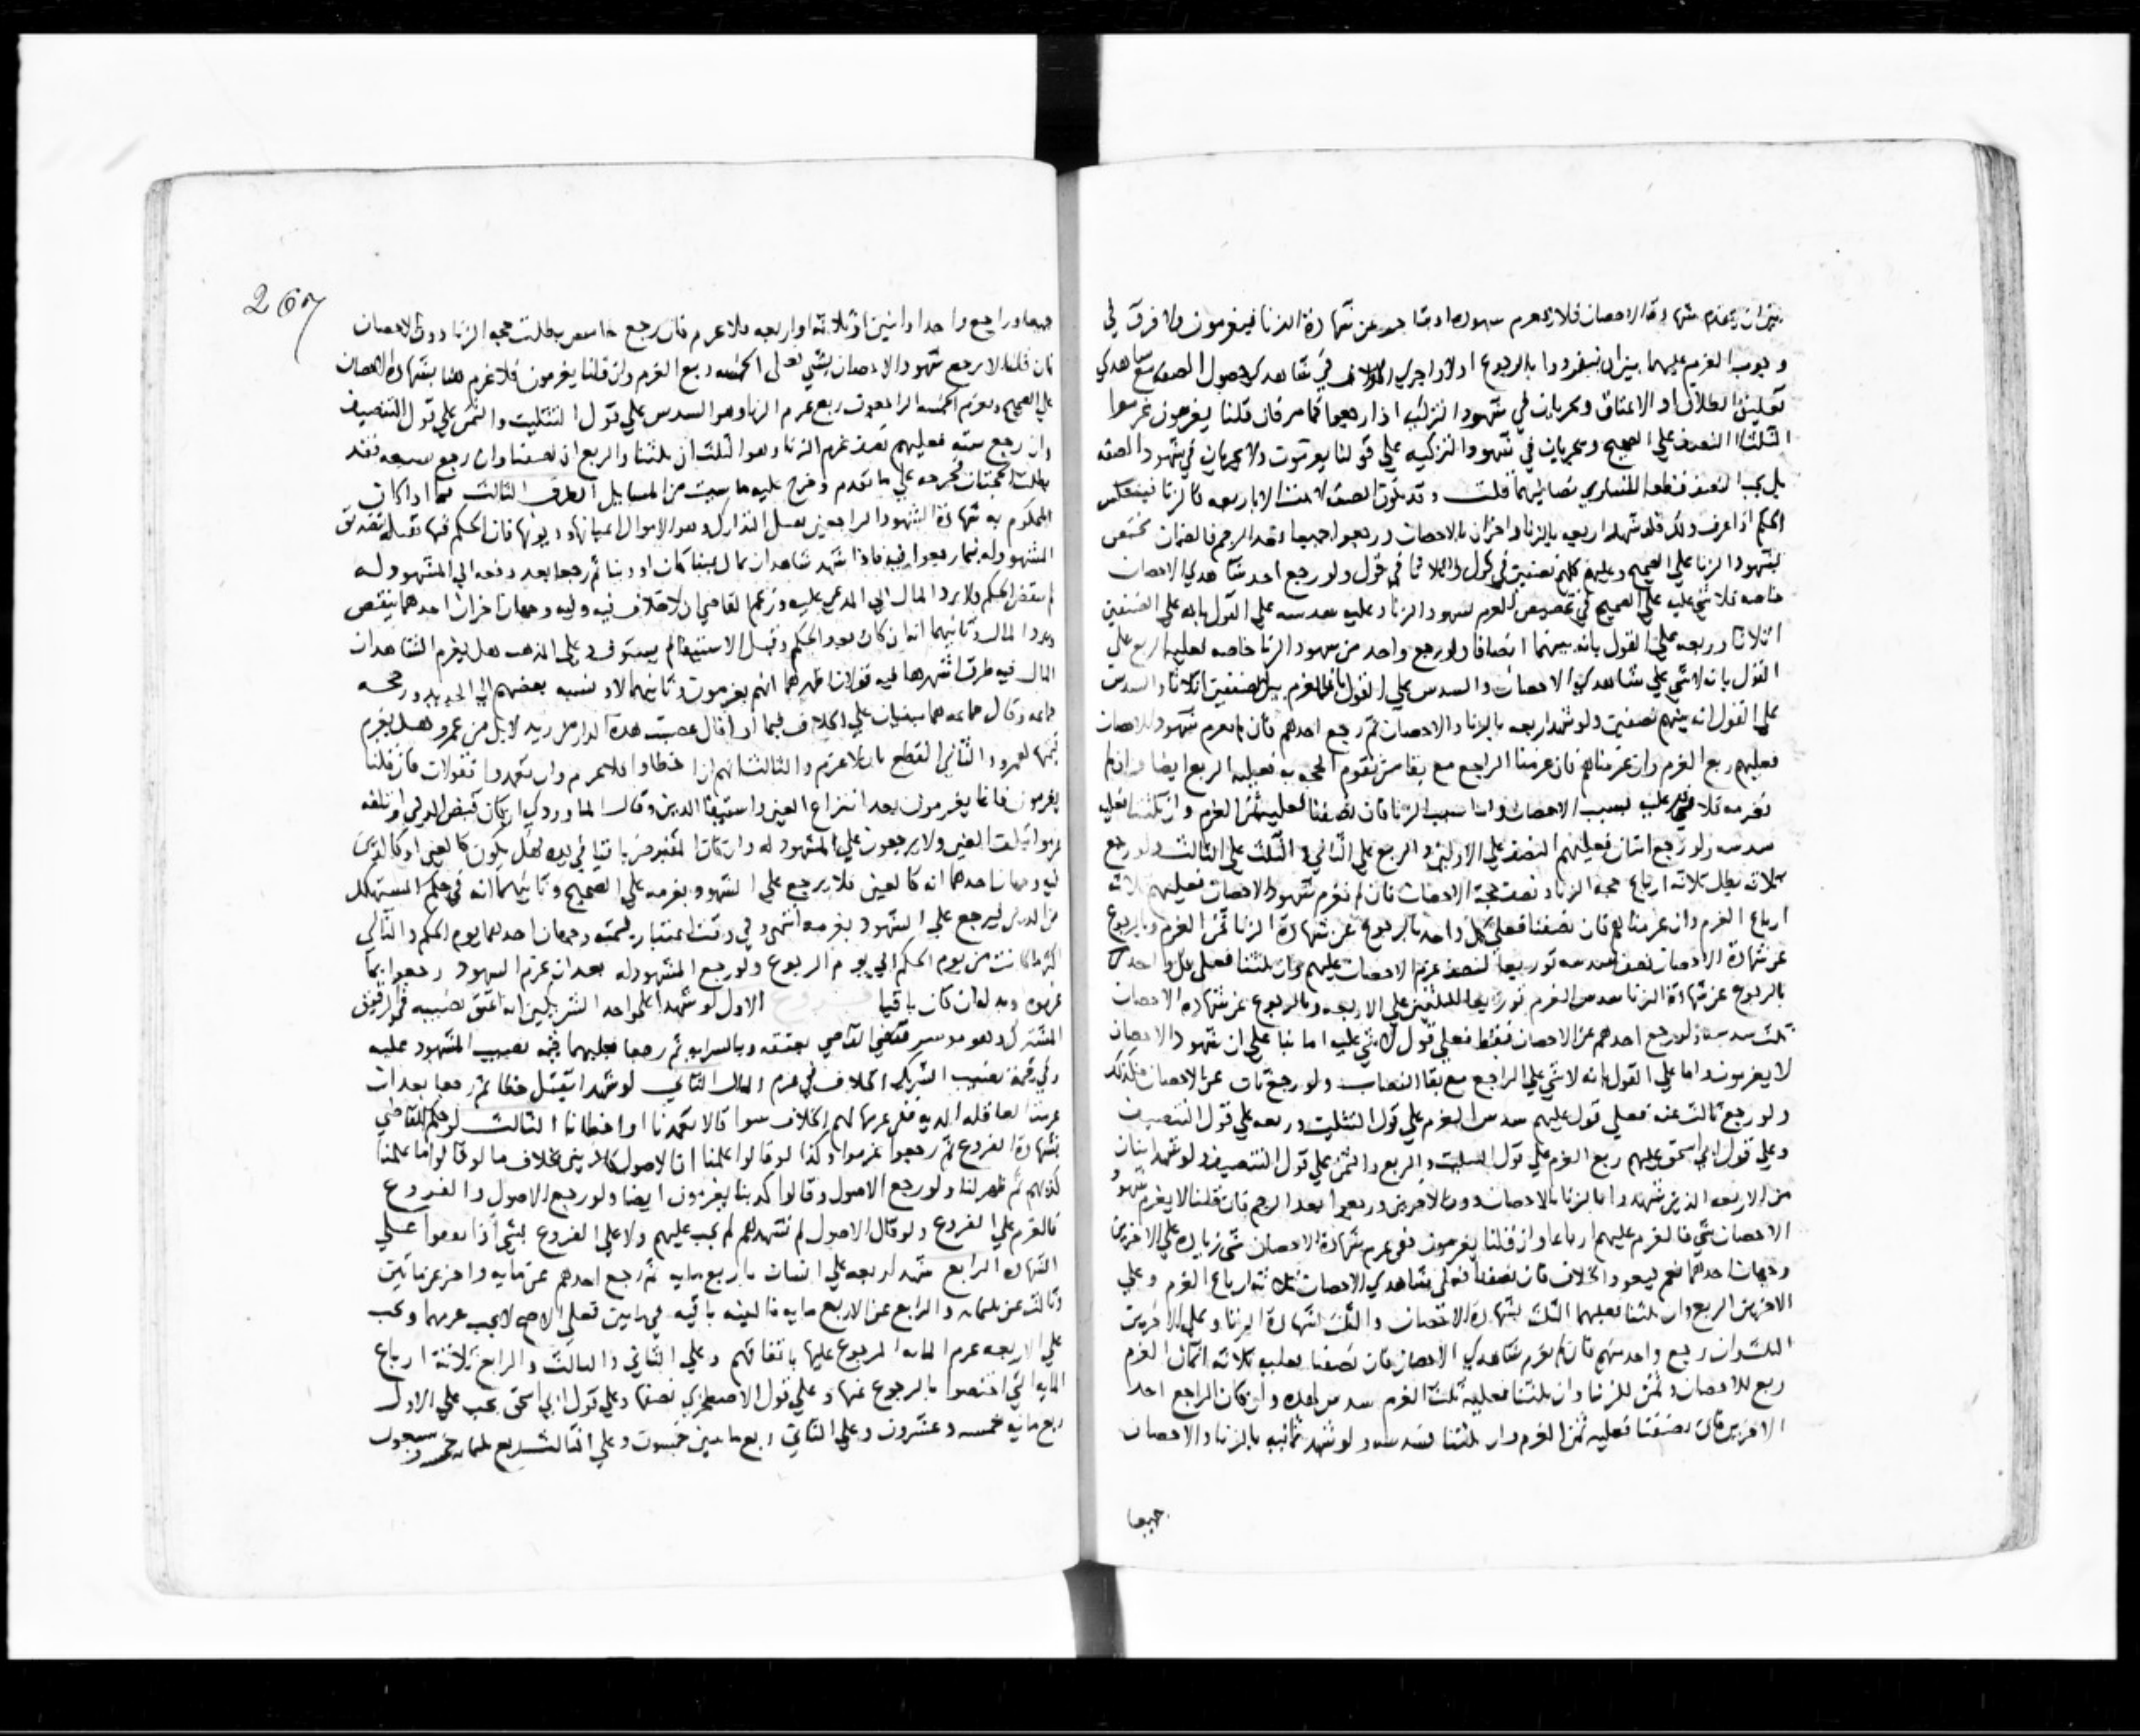 بين ان يتقدم شهادة الاحصان فلا يغرم شهوده او يتاخر عن شهادة الزنا فيغرمون ولا فرق في
وجوب الغرم عليهما بين ان ينفردوا بالرجوع اولا واجري الخلاف في شاهدي حصول الصفه مع شاهدي
تعليق الطلاق او الاعتاق ويجريان في شهود التزكية اذا رجعوا كما مر فان قلنا يغرمون غرموا
الثلث او النصف علي الصحيح ويجريان في شهود التزكيه علي قولنا يغرمون ولا يجريان في شهود الصفه
بل يجب النصف قطعا لتساوي نصابيهما قلت وقد تكون الصفه لا تثبت الا باربعه كالزنا فينعكس
الحكم اذا عرف ذلك فلو شهد اربعه بالزنا واخران بالاحصان ورجعوا جميعا بعد الرجم فالضمان يختص
بشهود الزنا علي الصحيح وعليهم كلهم نصفين في قول واثلاثا في قول ولو رجع احد شاهدي الاحصان
خاصه فلا شي عليه علي الصحيح في تخصيص الغرم بشهود الزنا وعليه سدسه علي القول بانه علي الصنفين
اثلاثا وربعه علي القول بانه بينهما انصافا ولو رجع واحد من شهود الزنا خاصه فعليه الربع علي
القول بان لا شي علي شاهدي الاحصان والسدس علي القول بان الغرم بين الصنفين اثلاثا والسدس
علي القول انه بينهم نصفين ولو شهد اربعه بالزنا والاحصان ثم رجع احدهم فان لم يغرم شهود الاحصان
فعليهم ربع الغرم وان غرمناهم فان غرمنا الراجع مع بقا من تقوم الحجه به فعليه الربع ايضا وان لم
نغرمه فلا شي عليه بسبب الاحصان واما سبب الزنا فان نصفنا فعليه ثمن الغرم وان ثلثنا فعليه
سدسه ولو رجع اثنان فعليهم النصف علي الاولين والربع علي الثاني والثلث علي الثالث ولو رجع
ثلاثه بطل ثلاثه ارباع حجه الزنا ونصف حجة الاحصان فان لم نغرم شهود الاحصان فعليهم ثلاثه
ارباع الغرم وان غرمناهم فان نصفنا فعلي كل واحد بالرجوع عن شهادة الزنا ثمن الغرم وبالرجوع
عن شهادة الاحصان نصف سدسه توزيعا لنصف غرم الاحصان عليهم وان ثلثنا فعلي كل واحد
بالرجوع عن شهادة الزنا سدس الغرم توزيعا للثلثين علي الاربعه وبالرجوع عن شهادة الاحصان
ثلث سدسه ولو رجع احدهم عن الاحصان فقط فعلي قول لا شي عليه اما بنا علي ان شهود الاحصان
لا يغرمون واما علي القول بانه لا شي علي الراجع مع بقا النصاب ولو رجع ثان عن الاحصان فكذلك
ولو رجع ثالث عنه فعلي قول عليهم سدس الغرم علي قول التثليث وربعه علي قول التنصيف
وعلي قول ابي اسحق عليهم ربع الغرم علي قول التثليث والربع والثمن علي قول التنصيف ولو شهد اثنان
من الاربعه الذين شهدوا بالزنا بالاحصان دون الاخرين ورجعوا بعد الرجم فان قلنا لا يغرم شهود
الاحصان شي فالغرم عليهم ارباعا وان قلنا يغرمون ففي غرم شهادة الاحصان شي زياده علي الاخرين
وجهان احدهما نعم فيعود الخلاف فان نصفنا فعلي شاهدي الاحصان ثلاثة ارباع الغرم وعلي
الاخرين الربع وان ثلثنا فعليهما الثلث بشهادة الاحصان والثلث لشهادة الزنا وعلي الاخرين
الثلث وان رجع واحد منهم فان لم نغرم شاهدي الاحصان فان نصفنا فعليه ثلاثه اثمان الغرم
ربع للاحصان وثمن للزنا وان ثلثنا فعليه ثلث الغرم سدس لهذه وان كان الراجع احد
الاخرين فان نصفنا فعليه ثمن الغرم وان ثلثنا فسدسه ولو شهد ثمانيه بالزنا والاحصان
جميعا
267
جميعا ورجع واحد او اثنين او ثلاثه او اربعه فلا غرم فان رجع خامس بطلت حجه الزنا دون الاحصان
فان قلنا لا يرجع شهود الاحصان بشي فعلي الخمسه ربع الغرم وان قلنا يغرمون فلا غرم هنا بشهادة الاحصان
علي الصحيح ويغرم الخمسه الراجعون ربع غرم الزنا وهو السدس علي قول التثليث والثمن علي قول التنصيف
وان رجع سته فعليهم نصف غرم الزنا وهو الثلث ان ثلثنا والربع ان نصفنا وان رجع سبعه فقد
بطلت الحجتان فخرجه علي ما تقدم وخرج عليه ما سبق من المسايل الطرف الثالث فيما اذا كان
المحكوم به شهادة الشهود الراجعين يقبل التدارك وهو الاموال اعيانها وديونها فان الحكم فيها تقبل تصديق
المشهود له فيما رجعوا فيه فاذا شهد شاهدان بمال عينا كان او دينا ثم رجعا بعد دفعه الي المشهود له
لم ينقض الحكم ولا يرد المال الي المدعي عليه وزعم القاضي ان لا خلاف فيه وفيه وجهان اخران احدهما ينقض
ويرد المال وثانيهما انه ان كان بعد الحكم وقبل الاستيفا لم يستوف وعلي المذهب هل يغرم الشاهدان
المال فيه طرق اشهرها فيه قولان اظهرهما انهم يغرمون وثانيهما لا ونسبه بعضهم الي الجديد ورجحه
جماعه وقال جماعه هما مبنيان علي الخلاف فيما اذا قال غصبت هذه الدار من زيد لا بل من عمرو هل يغرم
قيمتها لعمرو والثاني القطع بان لا غرم والثالث انهم اذا اخطاوا فلا غرم وان تعمدوا فقولان فان قلنا
يغرمون فانما يغرمون بعد انتزاع العين واستيفا الدين وقال الماوردي ان كان قبض المولي او تلفه
غرموا تلفت العين ولا يرجعون علي المشهود له وان كان المقبوض باقيا في يده فهل يكون كالعين او كالدين
فيه وجهان احدهما انه كالعين فلا يرجع علي الشهود بغرمه علي الصحيح وثانيهما انه في حكم المستهلك
من الدين فيرجع علي الشهود بغرمه انتهي وفي وقت اعتبار قيمته وجهان احدهما يوم الحكم والثاني
اكثر ما كانت من يوم الحكم الي يوم الرجوع ولو رجع المشهود له بعد ان غرم الشهود رجعوا بما
غرموه وبدله ان كان باقيا فــروع الاول لو شهدا علي واحد الشريكين انه اعتق نصيبه من الرقيق
المشترك وهو موسر فقضي القاضي بعتقه وبالسرايه ثم رجعا فعليهما قيمه نصيب المشهود عليه
وفي قيمة نصيب الشريك الخلاف في غرم المال الثاني لو شهدا بقتل خطا ثم رجعا بعد ان
غرمنا العاقله الديه ففي غرمها لهم الخلاف سوا قالا تعمدنا او اخطانا الثالث لو حكم القاضي
بشهادة الفروع ثم رجعوا غرموا وكذا لو قالوا علمنا ان الاصول كاذبين بخلاف ما لو قالوا ما علمنا
كذبهم ثم ظهر لنا ولو رجع الاصول وقالوا كذبنا يغرمون ايضا ولو رجع الاصول والفروع
فالغرم علي الفروع ولو قال الاصول لم نشهدهم لم يجب عليهم ولا علي الفروع شي اذا داموا علي
الشهاده الرابع شهد اربعه علي انسان باربع مايه ثم رجع احدهم عن مايه واخر عن مايتين
وثالث عن ثلثمايه والرابع عن الاربع مايه فالبينه باقيه في مايتين فعلي الاصح لا يجب غرمهما ويجب
علي الاربعه غرم المايه المرجوع عليها باتفاقهم وعلي الثاني والثالث والرابع ثلاثة ارباع
المايه التي اختصوا بالرجوع عنها وعلي قول الاصطخري نصفها وعلي قول ابي اسحق يجب علي الاول
ربع مايه خمسه وعشرون وعلي الثاني ربع مايتين خمسون وعلي الثالث ربع ثلثمايه خمسه وسبعون